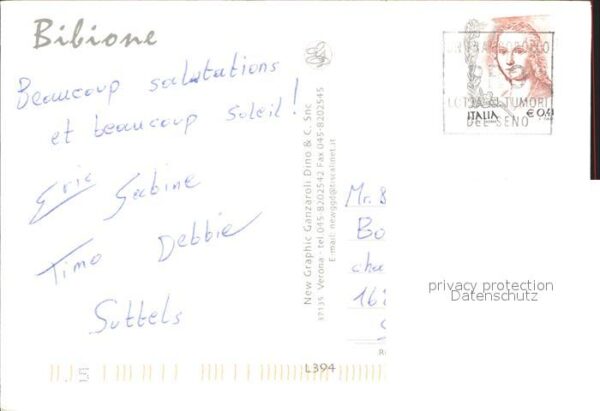 Bibione
Beaucoup salutations
et beaucoup soleil!
Eric Sabine
Timo Debbie
Suttels
New Graphic Ganzaroli Dino & C. Snc
37135 Verona - tel 045-8202542 Fax 045-8202545
E-mail: newggd@tiscalinet.it
L394
LOTTA AI TUMORI
DEL SENO
ITALIA
Mr.
Bo
cha
privacy protection
Datenschutz